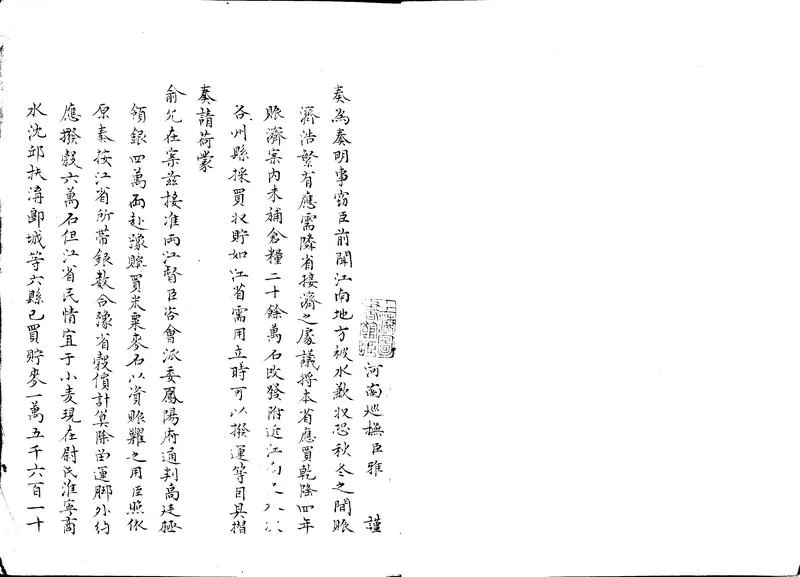 河南巡撫臣雅 謹
奏為奏明事竊臣前聞江南地方被水歉收恐秋冬之間賑
濟浩繁有應需隣省接濟之處議將本省應買乾隆四年
賑濟案內未補倉糧二十餘萬石改發附近江南
各州縣採買收貯如江省需用立時可以撥運等因具摺
奏請荷蒙
俞允在案茲接准兩江督臣咨會派委鳳陽府通判高廷極
領銀四萬兩赴豫購買米粟麥石以資賑糶之用臣照依
原奏按江省所帶銀數合豫省穀價計算除留運腳外約
應撥穀六萬石但江省民情宜于小麦現在尉氏淮寧商
水沈邱扶溝郾城等六縣已買貯麥一萬五千六百一十